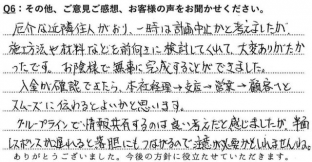 Q6：その他、ご意見ご感想、お客様の声をお聞かせください。
厄介な近隣住人がおり、一時は計画中止かと考えましたが、
施工方法や材料などを前向きに検討してくれて、大変ありがたか
ったです。お陰様で無事に完成することができました。
入金が確認できたら、本社経理→支店→営業→顧客へと
スムーズに伝わるとよいかと思います。
グループラインで情報共有するのは良い考えだと感じましたが、半面
レスポンスが遅れると落胆にもつながるので注意が必要かもしれませんね。
ありがとうございました。今後の方針に役立たせていただきます。